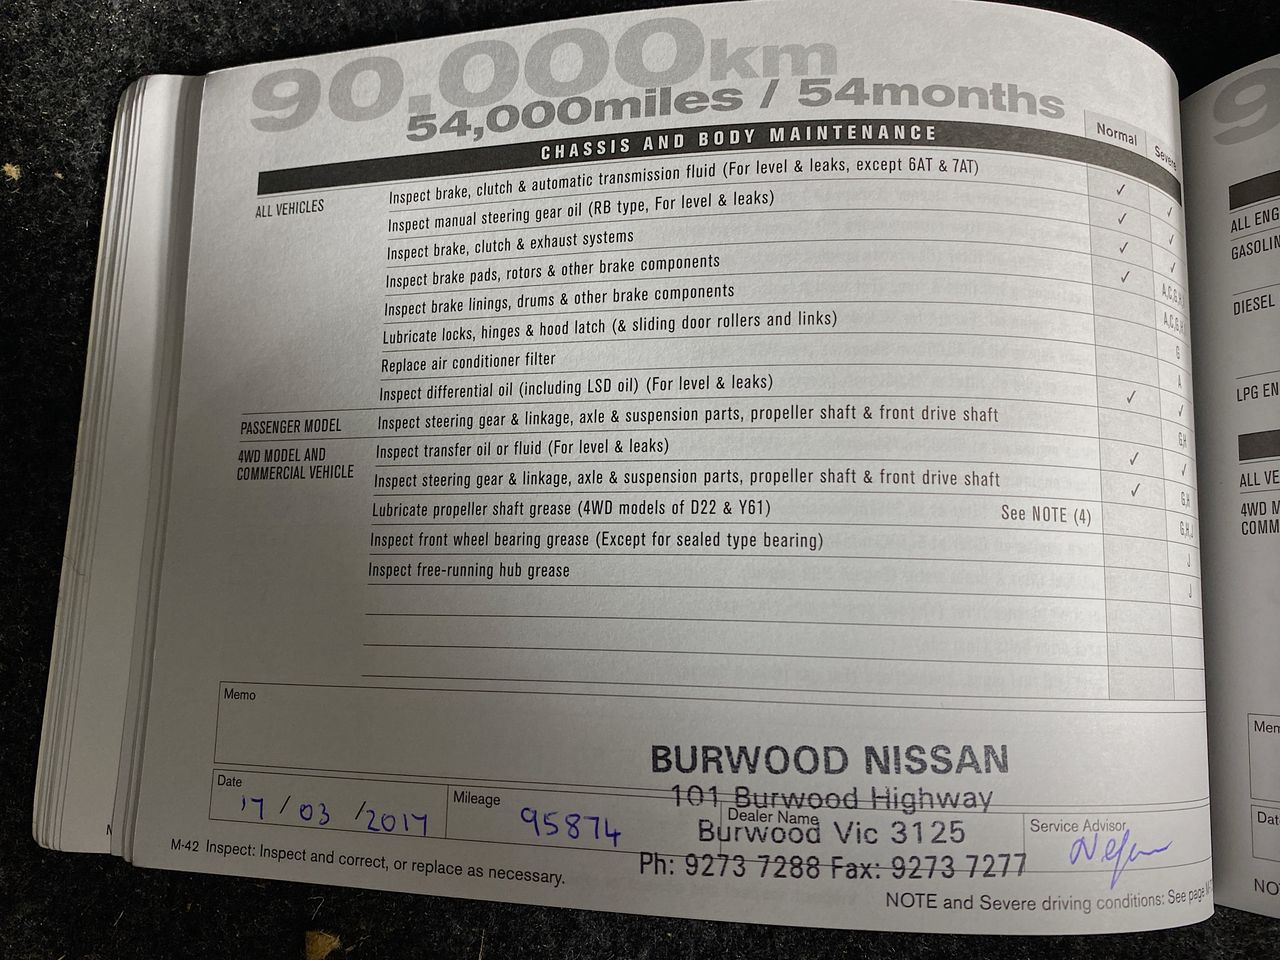 90,000km
54,000miles / 54months
CHASSIS AND BODY MAINTENANCE
Normal
Severe
ALL VEHICLES
Inspect brake, clutch & automatic transmission fluid (For level & leaks, except 6AT & 7AT) ✓ ✓
Inspect manual steering gear oil (RB type, For level & leaks) ✓ ✓
Inspect brake, clutch & exhaust systems ✓ ✓
Inspect brake pads, rotors & other brake components ✓ A,C,G,H
Inspect brake linings, drums & other brake components A,C,G,H
Lubricate locks, hinges & hood latch (& sliding door rollers and links) G
Replace air conditioner filter A
Inspect differential oil (including LSD oil) (For level & leaks) ✓ ✓
PASSENGER MODEL
Inspect steering gear & linkage, axle & suspension parts, propeller shaft & front drive shaft G,H
4WD MODEL AND
COMMERCIAL VEHICLE
Inspect transfer oil or fluid (For level & leaks) ✓ ✓
Inspect steering gear & linkage, axle & suspension parts, propeller shaft & front drive shaft ✓ G,H
Lubricate propeller shaft grease (4WD models of D22 & Y61) See NOTE (4) G,H,J
Inspect front wheel bearing grease (Except for sealed type bearing) J
Inspect free-running hub grease J
Memo
BURWOOD NISSAN
101 Burwood Highway
Burwood Vic 3125
Ph: 9273 7288 Fax: 9273 7277
Date
17/03/2017
Mileage
95874
Dealer Name
Service Advisor
M-42 Inspect: Inspect and correct, or replace as necessary.
NOTE and Severe driving conditions: See page
9
ALL ENG
GASOLIN
DIESEL
LPG EN
ALL VE
4WD M
COMM
Mem
Dat
NO